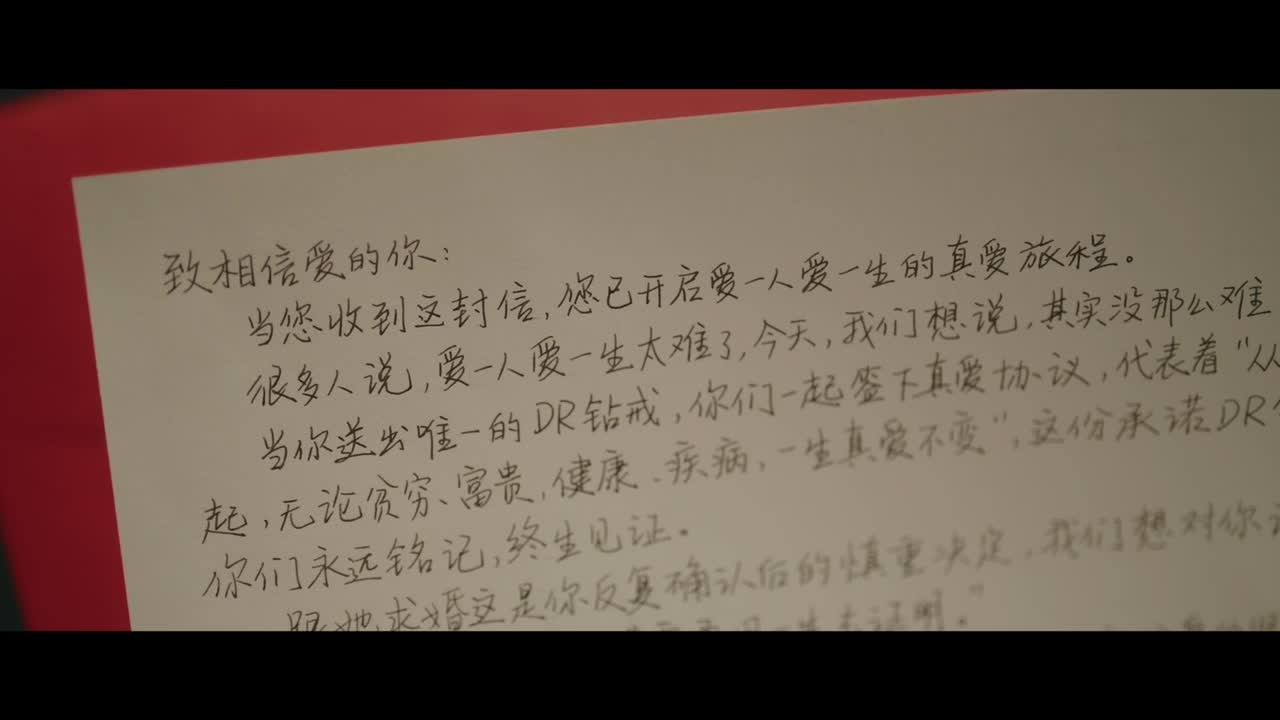 致相信爱的你：
当您收到这封信，您已开启爱一人爱一生的真爱旅程。
很多人说，爱一人爱一生太难了，今天，我们想说，其实没那么难
当你送出唯一的DR钻戒，你们一起签下真爱协议，代表着“从
起，无论贫穷、富贵，健康、疾病，一生真爱不变”，这份承诺DR
你们永远铭记，终生见证。
跟她求婚这是你反复确认后的慎重决定，我们想对你
一生去证明。”